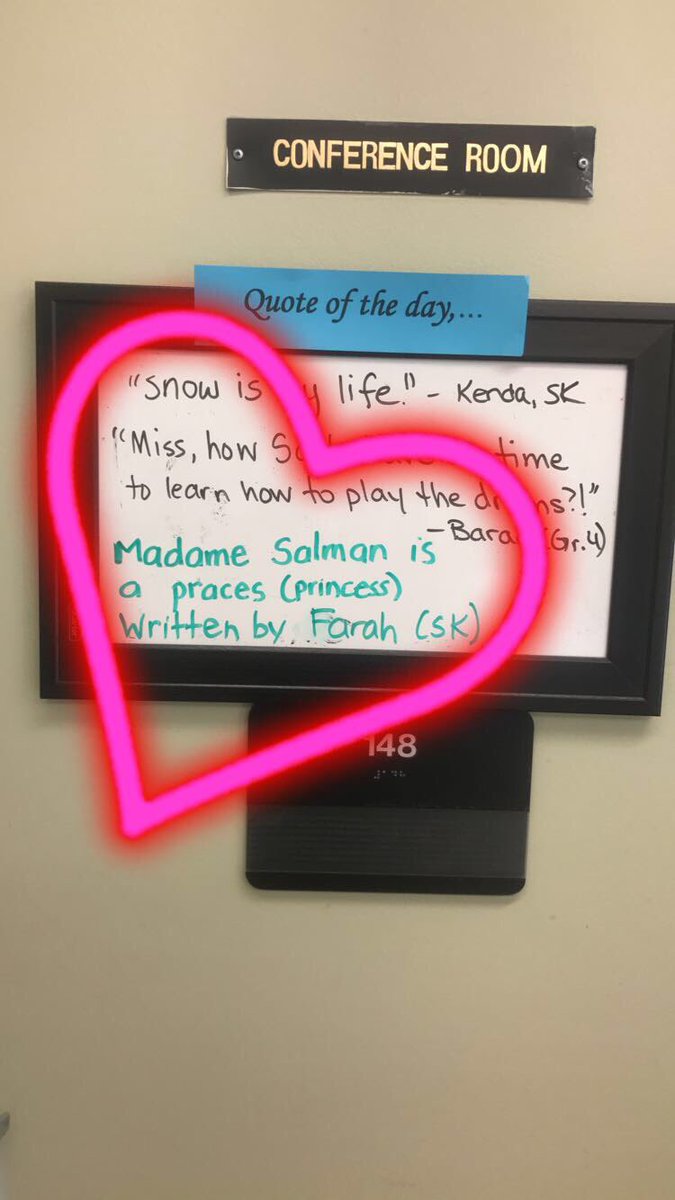 CONFERENCE ROOM
Quote of the day,...
"Snow is life." - Kenda, SK
"Miss, how time
to learn how to play the
Madame Salman is
a praces (princess)
Written by Farah (SK)
(Gr.4)
148